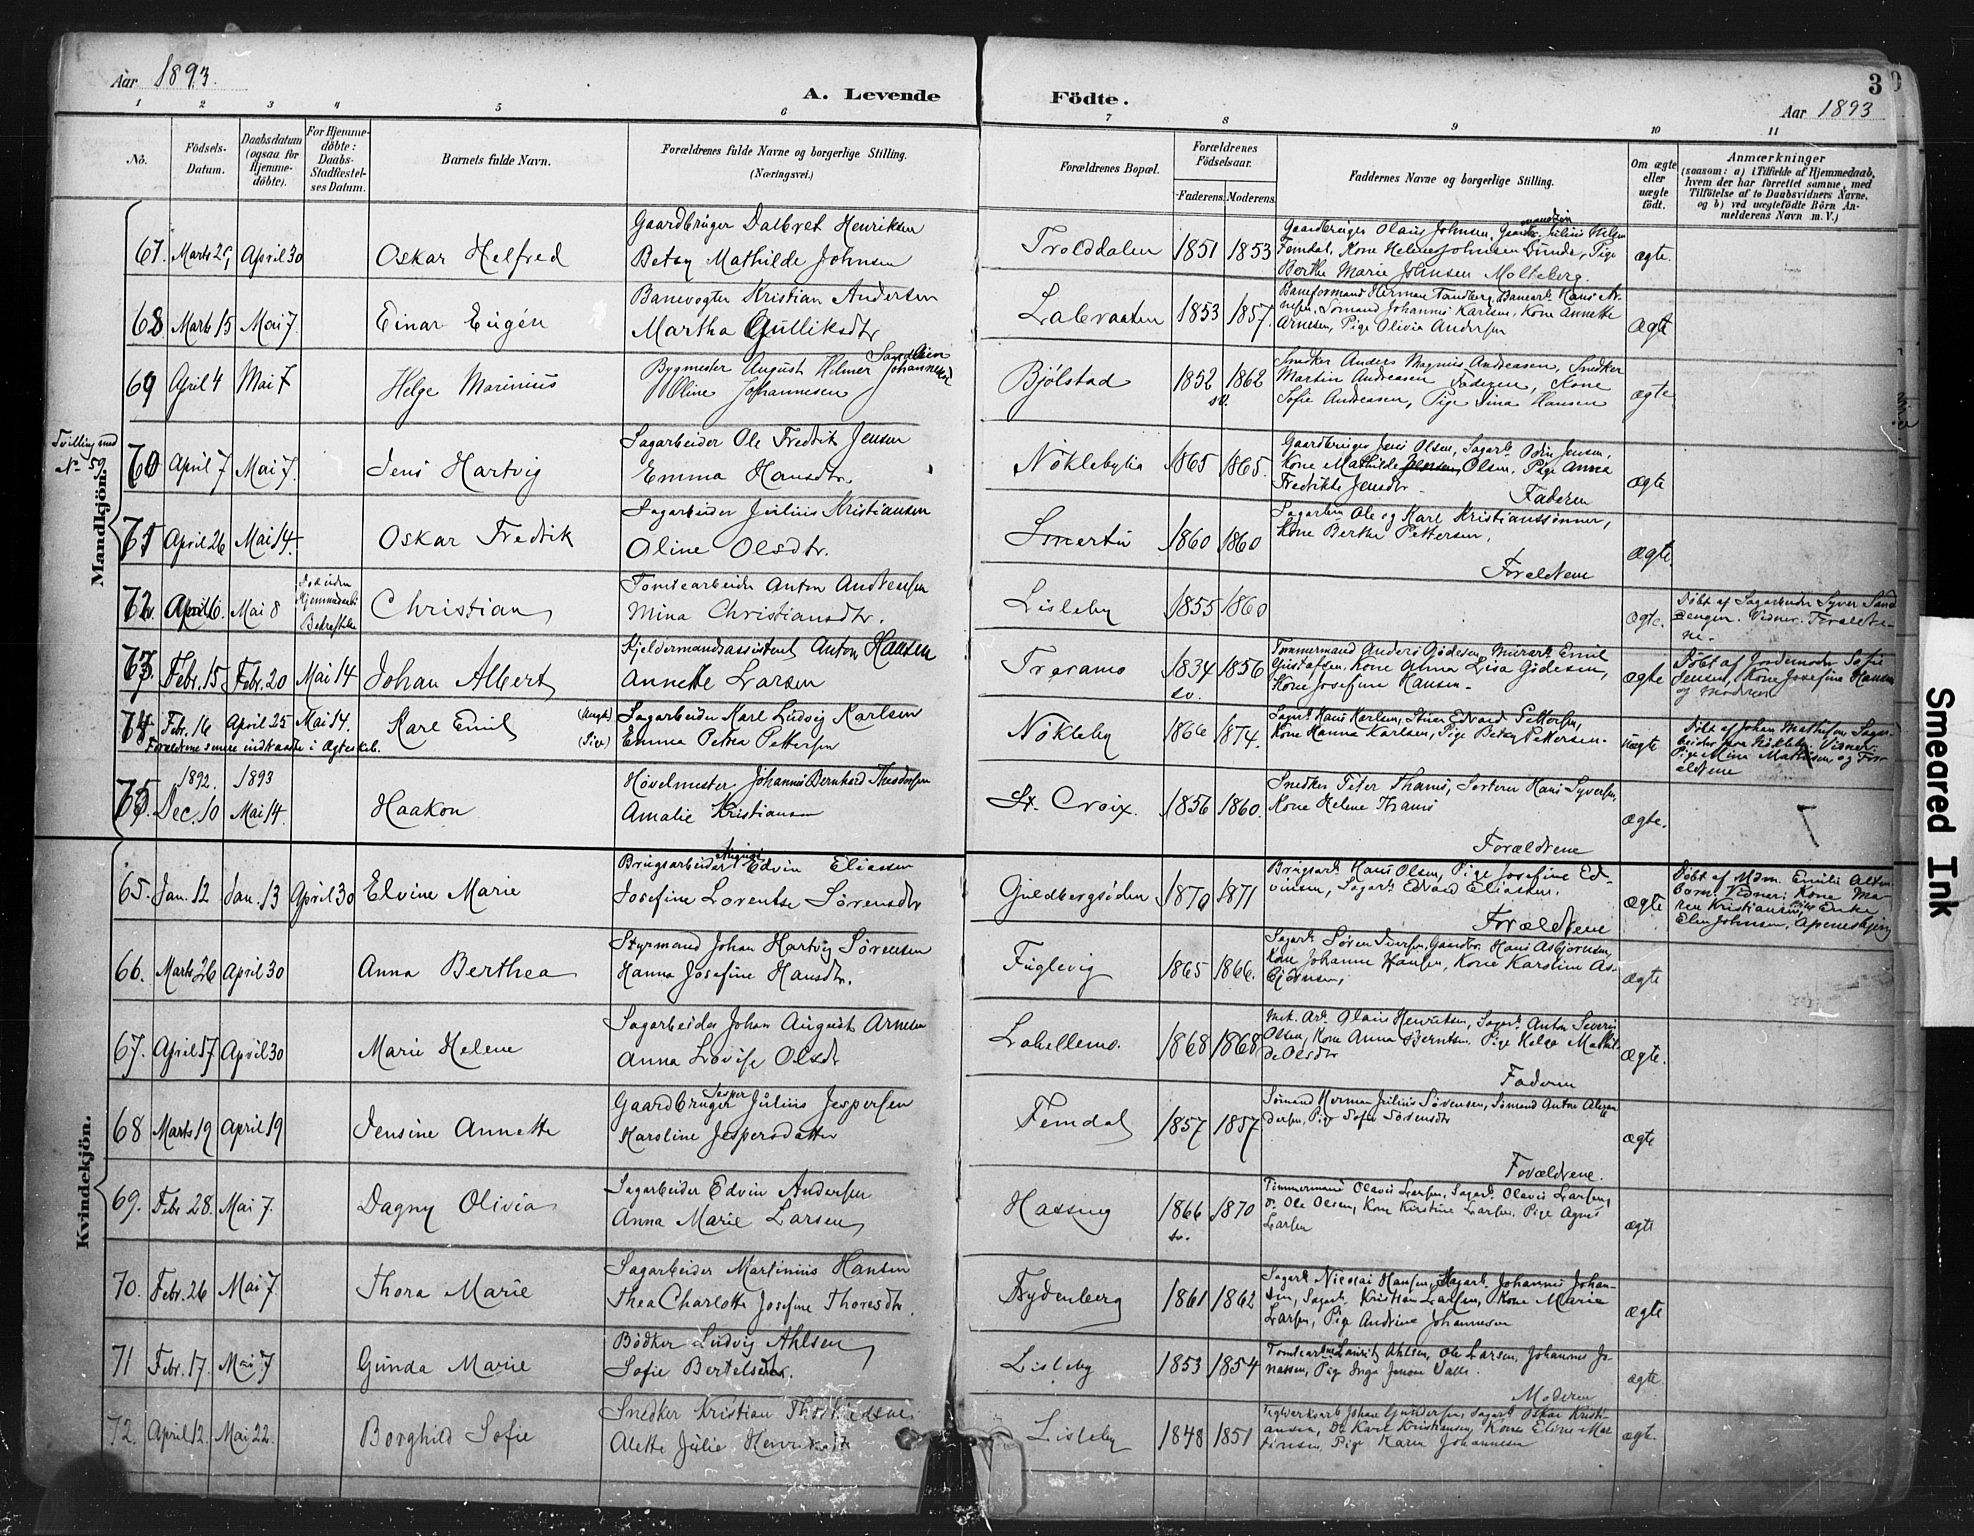 Aar 1893.
A. Levende Födte.
3
Aar 1893
1 2 3 4 5 6 7 8 9 10 11
No.
Födsels-Datum.
Daabsdatum (ogsaa for Hjemme-döbte).
For Hjemme-döbte: Daabs-Stadfæstel-ses Datum.
Barnets fulde Navn.
Forældrenes fulde Navne og borgerlige Stilling.
(Næringsvei.)
Forældrenes Bopæl.
Forældrenes Födselsaar.
Faderens. Moderens.
Faddernes Navne og borgerlige Stilling.
Om ægte eller uægte födt.
Anmærkninger
(saasom: a) i Tilfælde af Hjemmedaab, hvem der har forrettet samme, med Tilföielse af to Daabsvidners Navne, og b) ved uægtefödte Börn An-melderens Navn m. V.)
Mandkjön.
67. Marts 25, April 30 Oskar Helfred
Gaardbruger Dalbret Henriksen
Betsy Mathilde Johnsen
Trolddalen 1851 1853
Gaardbruger Olaus Johnsen, Julius
Femdal, Kone Helene Johnsen Lunde, Pige
Berthe Marie Johnsen Molteberg.
ægte.
68. Marts 15 Mai 7. Einar Eugén
Banevogter Kristian Andersen
Martha Gulliksdtr
1853 1857.
Baneformand Herman Tandberg, Banearb. Hans Ar-
nesen, Sömand Johannes Karlsen, Kone Annette
Arnesen, Pige Olivia Andersen
ægte
69 April 4 Mai 7 Helge Marinius
Bygmester August Hilmer Johannesen
Oline Johannesen
Bjölstad 1852 1862
sv.
Snedker Anders Magnus Andreasen, Snedker
Martin Andreasen Faderen, Kone
Sofie Andreasen, Pige Lina Hansen
ægte
Tvilling med
No 59.
70 April 7 Mai 7. Jens Hartvig
Sagarbeider Ole Fredrik Jensen
Emma Hansdtr.
Nöklebylia 1865 1865.
Gaardbruger Jens Olsen, Sagarb. Jensen,
Kone Mathilde Olsen, Pige Anna
Fredrikke Jensdtr. Faderen
ægte
71 April 26 Mai 14. Oskar Fredrik
Sagarbeider Julius Kristiansen
Oline Olsdtr.
Smertu 1860 1860
Ole og Karl Kristianssönner,
Kone Berthe Pettersen,
Foreldrene
ægte.
72. April 6. Mai 8
Bekræftelse
Christian
Tomtearbeider Anton Andreasen
Mina Christiansdtr.
Lisleby 1855 1860
ægte.
Döbt af Sagarbeider Syver Sand
engen. Vidner: Foreldre-
ne.
73. Febr. 15 Febr. 20 Mai 14 Johan Albert
Kjeldermandsassistent Anton Hansen
Annette Larsen
Traramo 1834 1856
sv.
Tömmermand Anders Gödesen, Murarb. Emil
Gustafsen, Kone Anna Lisa Gödesen,
Kone Josefine Hansen.
ægte
Döbt af Jordemoder Sofie
Jensen, Kone Josefine Hansen
og Moderen
74. Febr. 16 April 25 Mai 14. Karl Emil
Forældrene senere indtraadte i Ægteskab.
(Ungk)
(Pige)
Sagarbeider Karl Ludvig Karlsen
Emma Petrea Pettersen
Nökleby 1866 1874.
Sagarb. Hans Karlsen, Edvard Pettersen,
Kone Hanna Karlsen, Pige Betsy Pettersen.
uægte
Döbt af Johan Mathisen, Sagar-
beider Nökleby. Vidner:
Pige Mina Mathisen og For-
eldrene
75. 1892. Dec. 10 1893 Mai 14. Haakon
Hövelmester Johannes Bernhard Theodorsen
Amalie Kristiansen
St. Croix. 1856 1860.
Snedker Peter Thams, Sorterer Hans Syversen,
Kone Helene Thams
Forældrene
ægte.
Kvindekjön.
65. Jan. 12 Jan. 13 April 30 Elvine Marie
Brugsarbeider August Edvin Eliassen
Josefine Lorentse Sörensdtr
Guldbergsiden 1870 1871
Brugsarb. Hans Olsen, Pige Josefine Ed-
vinsen, Sagarb. Edvard Eliassen.
Forældrene
ægte
Döbt af Mdm. Emilie Alten-
born. Vidner: Kone Ma-
ren Kristiansen, Enke
Elen Johnsen, Apenesfjeng
66. Marts 26 April 30 Anna Berthea
Styrmand Johan Hartvig Sörensen
Hanna Josefine Hansdtr.
Fuglevig 1865 1866.
Sagarb. Sören Iversen, Gaardbr. Hans Asbjörnsen,
Kone Johanne Hansen, Kone Karoline As-
björnsen,
ægte
67. April 17 April 30 Marie Helene
Sagarbeider Johan August Arnesen
Anna Lovise Olsdtr
Labellemo. 1868 1868
Mek. Arb. Olaus Henriksen, Sagarb. Anton Severin
Olsen, Kone Anna Berntsen, Pige Helga Mathil-
de Olsdtr
Faderen
ægte.
68 Marts 19 April 19 Jensine Annette
Gaardbruger Jesper Julius Jespersen
Karoline Jespersdatter
Femdal 1857 1857
Sömand Herman Julius Sörensen, Sömand Anton Alexan
dersen, Pige Sofie Sörensdtr
Forældrene.
ægte
69. Febr 28. Mai 7. Dagny Olivia
Sagarbeider Edvin Andersen
Anna Marie Larsen
Hassing 1866 1870
sv.
Tömmermand Olavus Larsen, Sagarb. Olavus Larsen,
Ole Olsen, Kone Kirstine Larsen. Pige Agnes
Larsen
ægte
70. Febr. 26 Mai 7. Thora Marie
Sagarbeider Martinius Hansen
Thea Charlotte Josefine Thoresdtr.
Frydenberg 1861 1862
Sagarb. Nicolai Hansen, Sagarb. Johannes Johan-
sen, Sagarb. Kristian Larsen, Kone Marie
Larsen, Pige Andrine Johannesen
ægte
71 Febr. 17. Mai 7 Gunda Marie
Bödker Ludvig Ahlsen
Sofie Bertelsdtr.
Lisleby 1853 1854
Tomtearb. Lauritz Ahlsen, Ole Larsen, Johannes Jo-
nassen, Pige Inga Valle.
Moderen
ægte
72. April 12. Mai 22. Borghild Sofie
Snedker Kristian
Alette Julie Henriksdtr
Lisleby 1848 1851
Teglverksarb Johan Gundersen, Sagarb. Oskar Kristi-
ansen, Do Karl Kristiansen, Kone Eline Mar
tinsen, Pige Karen Johannesen
ægte.
Smeared Ink